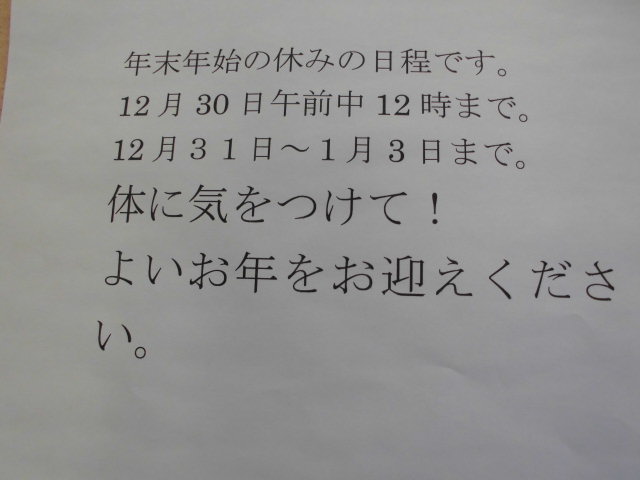 年末年始の休みの日程です。
12月30日午前中12時まで。
12月３１日～１月３日まで。
体に気をつけて！
よいお年をお迎えくださ
い。